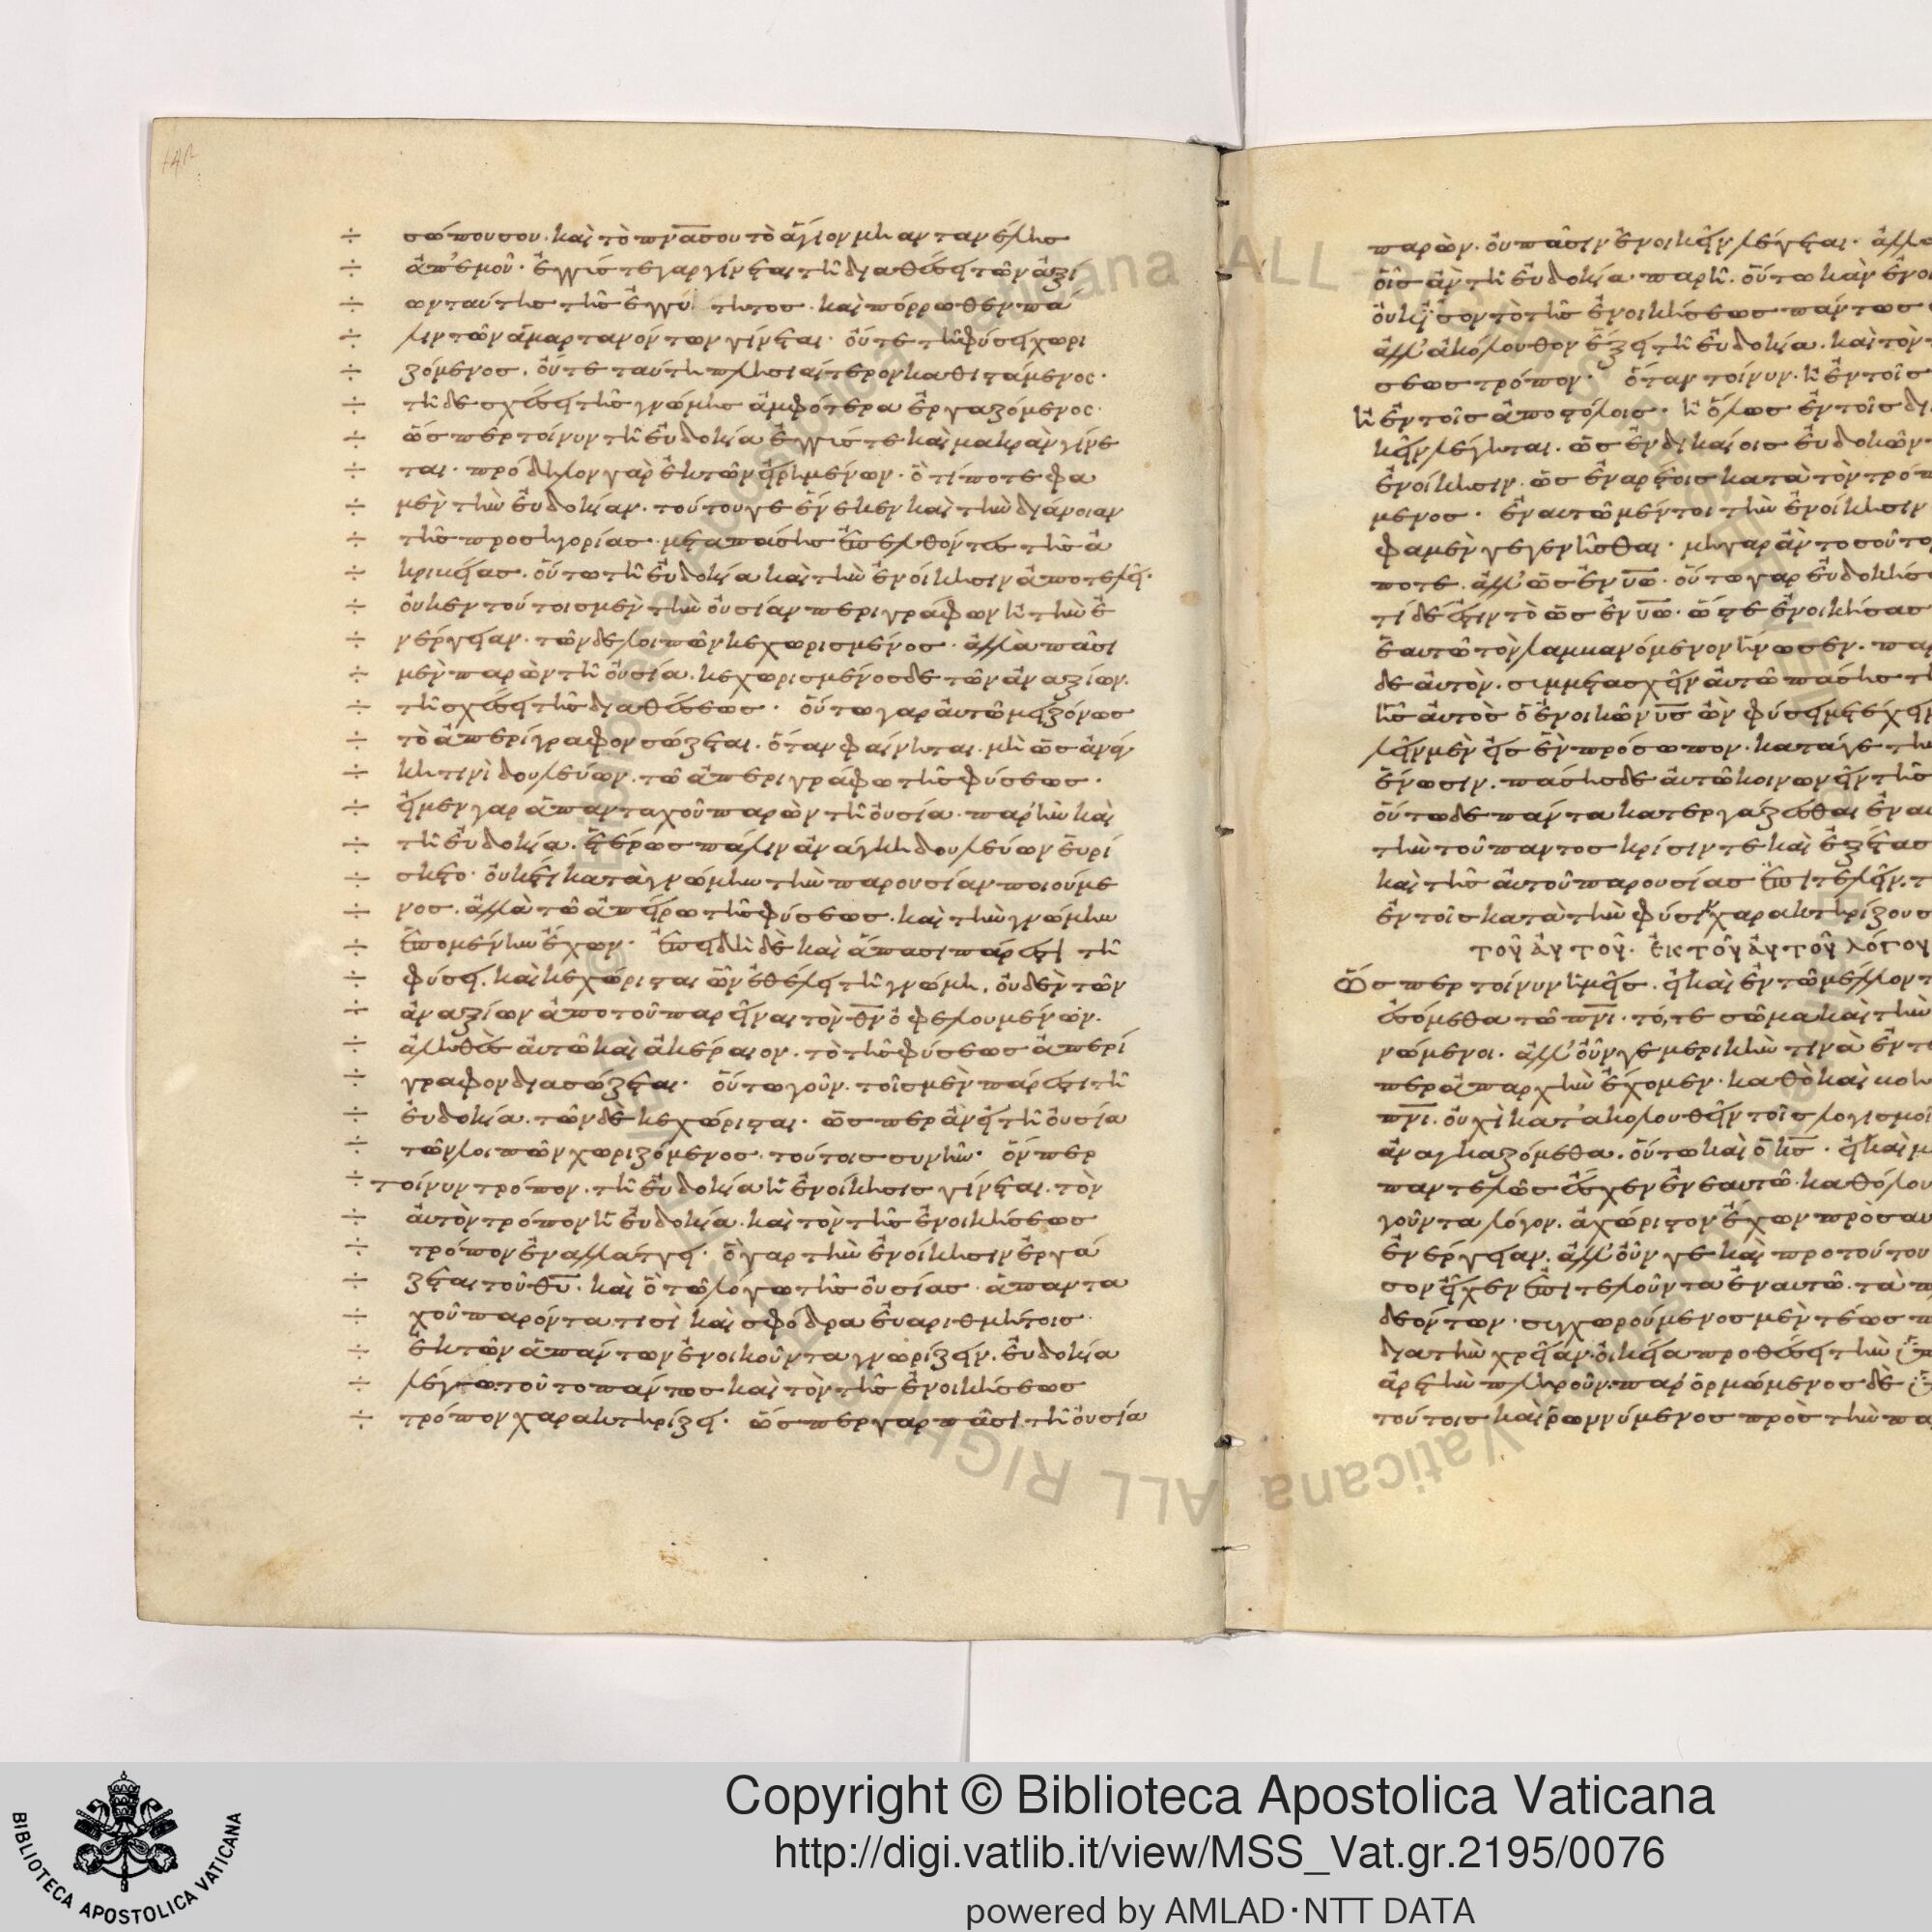 σώπου σου. καὶ τὸ πνα σου τὸ ἅγιον μὴ ἀντανέλῃς
ἀπ' ἐμοῦ. ἐγγίς τε γαρ γίνεται τῆ διαθέσει τῶν ἀξί
ων ταύτης τῆς ἐγγύτητος. καὶ πόρρωθεν πά
λιν τῶν ἁμαρτανόντων γίνεται. οὔτε τῆ φύσει χωρι
ζόμενος. οὔτε ταύτη πλησιαίτερον καθιστάμενος.
τῆ δε σχέσει τῆς γνώμης ἀμφότερα ἐργαζόμενος.
ὥσπερ τοίνυν τῆ εὐδοκία ἐγγίς τε καὶ μακρὰν γίνε
ται. πρόδηλον γὰρ ἐκ τῶν εἰρημένων. ὅ τί ποτε φα
μὲν τὴν εὐδοκίαν. τούτου γε ἕνεκεν καὶ τὴν διάνοιαν
τῆς προσηγορίας μετα πάσης ἐπελθόντες τῆς ἀ
κριβείας. οὕτω τῆ εὐδοκία καὶ τὴν ἐνοίκησιν ἀποτελεῖ.
οὐκ ἐν τούτοις μὲν τὴν οὐσίαν περιγράφων ἢ τὴν ἐ
νέργειαν. τῶν δε λοιπῶν κεχωρισμένος. ἀλλὰ πᾶσι
μὲν παρὼν τῆ οὐσία. κεχωρισμένος δε τῶν ἀναξίων.
τῆ σχέσει τῆς διαθέσεως. οὕτω γαρ αὐτῶ μειζόνως
τὸ ἀπερίγραφον σώζεται. ὅταν φαίνηται μὴ ὡς ἀνάγ
κη τινὶ δουλεύων. τῶ ἀπεριγράφω τῆς φύσεως.
εἰ μεν γαρ ἁπανταχοῦ παρὼν τῆ οὐσία. παρῆν καὶ
τῆ εὐδοκία. ἑτέρως πάλιν ἀνάγκη δουλεύων εὑρί
σκετο. οὐκέτι κατὰ γνώμην τὴν παρουσίαν ποιούμε
νος. ἀλλὰ τῶ ἀπείρω τῆς φύσεως. καὶ τὴν γνώμην
ἑπομένην ἔχων. ἐπειδὴ δὲ καὶ ἅπασι πάρεστι τῆ
φύσει. καὶ κεχώρισται ὧν ἐθέλει τῆ γνώμη. οὐδὲν τῶν
ἀναξίων ἀπο τοῦ παρεῖναι τὸν θν ὀφελουμένων.
ἀληθὲς αὐτῶ καὶ ἀκέραιον. τὸ τῆς φύσεως ἀπερί
γραφον διασώζεται. οὕτω γοῦν. τοῖς μὲν πάρεστι τῆ
εὐδοκία. τῶν δὲ κεχώρισται. ὥσπερ ἂν εἰ τῆ οὐσία
τῶν λοιπῶν χωριζόμενος. τούτοις συνῆν. ὅνπερ
τοίνυν τρόπον. τῆ εὐδοκία ἡ ἐνοίκησις γίνεται. τὸν
αὐτὸν τρόπον ἡ εὐδοκία. καὶ τὸν τῆς ἐνοικήσεως
τρόπον ἐναλλάττει. ὃ γαρ τὴν ἐνοίκησιν ἐργά
ζεται τοῦ θυ. καὶ ὃ τῶ λόγω τῆς οὐσίας. ἁπαντα
χοῦ παρόντα τισὶ καὶ σφόδρα εὐαριθμήτοις
ἐκ τῶν ἁπάντων ἐνοικοῦντα γνωρίζειν. εὐδοκία
λέγω. τοῦτο πάντως καὶ τὸν τῆς ἐνοικήσεως
τρόπον χαρακτηρίζει. ὥσπερ γαρ πᾶσι τῆ οὐσία
παρὼν. οὐ πᾶσιν ἐνοικεῖν λέγεται. ἀλλ
οἷς ἂν τῆ εὐδοκία παρῆ. οὕτω κἂν ἐνοι
οὐκ ἴσον τὸ τῆς ἐνοικήσεως πάντως
ἀλλ' ἀκόλουθον ἕξει τῆ εὐδοκία. καὶ τὸν
σεως τρόπον. ὅταν τοίνυν. ἢ ἐν τοῖς
ἢ ἐν τοῖς ἀποστόλοις. ἢ ὅλως ἐν τοῖς δι
κεῖν λέγηται. ὡς ἐν δικαίοις εὐδοκῶν
ἐνοίκησιν. ὡς ἐναρέτοις κατὰ τὸν τρόπ
μενος. ἐν αυτῶ μέντοι τὴν ἐνοίκησιν
φαμὲν γεγενῆσθαι. μὴ γαρ ἂν τοσοῦτο
ποτε. ἀλλ' ὡς ἐν υω. οὕτω γαρ εὐδοκήσ
τί δέ ἐστιν τὸ ὡς ἐν υω. ὥστε ἐνοικήσας
ἑαυτῶ τὸν λαμβανόμενον ἥνωσεν. παρ
δε αὐτὸν. συμμετασχεῖν αὐτῶ πάσης τ
ἧς αὐτὸς ὁ ἐνοικῶν υς ὢν φύσει μετέχει
λεῖν μὲν εἰς ἓν πρόσωπον. κατά γε τὴν
ἕνωσιν. πάσης δε αὐτῶ κοινωνεῖν τῆς
οὕτω δε πάντα κατεργάζεσθαι ἐν αυ
τὴν τοῦ παντος κρίσιν τε καὶ ἐξέτασ
καὶ τῆς αὐτοῦ παρουσίας ἐπιτελεῖν. τ
ἐν τοῖς κατὰ τὴν φύσιν χαρακτηρίζουσ
τοῦ αὐτοῦ. ἐκ τοῦ αὐτοῦ λόγου
Ὥσπερ τοίνυν ἡμεῖς. εἰ καὶ ἐν τῶ μέλλοντ
ἐσόμεθα τῶ πνι. τό,τε σῶμα καὶ τὴν
νώμενοι. ἀλλ' οὖν γε μερικήν τινὰ ἐντ
περ ἀπαρχὴν ἔχομεν. καθὸ καὶ βοη
πνι. οὐχὶ κατακολουθεῖν τοῖς λογισμοῖ
ἀναγκαζόμεθα. οὕτω καὶ ὁ κς. εἰ καὶ μ
παντελῶς ἔσχεν ἐν ἑαυτῶ καθόλου
γοῦντα λόγον. ἀχώριστον ἔχων πρὸς αυ
ἐνέργειαν. ἀλλ' οὖν γε καὶ προ τούτου
σον εἶχεν ἐπιτελοῦντα ἐν αυτῶ. τὰ π
δεόντων. συγχωρούμενος μὲν τέως π
δια τὴν χρείαν. οἰκεία προθέσει τὴν
ἀρετὴν πληροῦν. παρορμώμενος δὲ
τούτοις καὶ ῥωννύμενος πρὸς τὴν πα
Copyright © Biblioteca Apostolica Vaticana
http://digi.vatlib.it/view/MSS_Vat.gr.2195/0076
powered by AMLAD·NTT DATA
BIBLIOTECA APOSTOLICA VATICANA